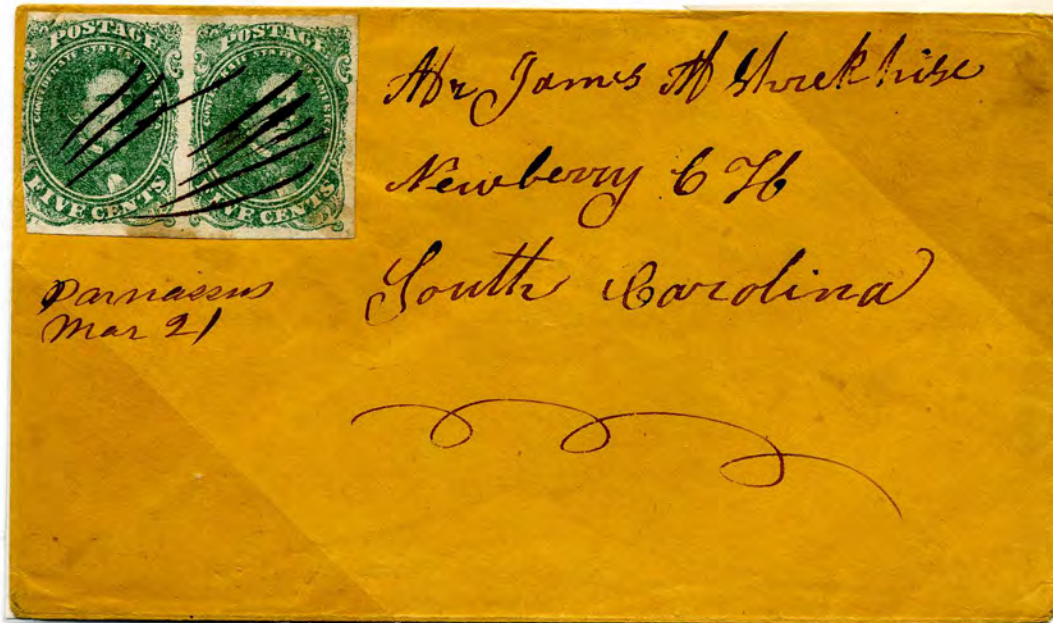 POSTAGE
CONFEDERATE STATES OF AMERICA
FIVE CENTS
POSTAGE
CONFEDERATE STATES OF AMERICA
FIVE CENTS
Mr James
Newberry C H
South Carolina
Parnassus
Mar 21